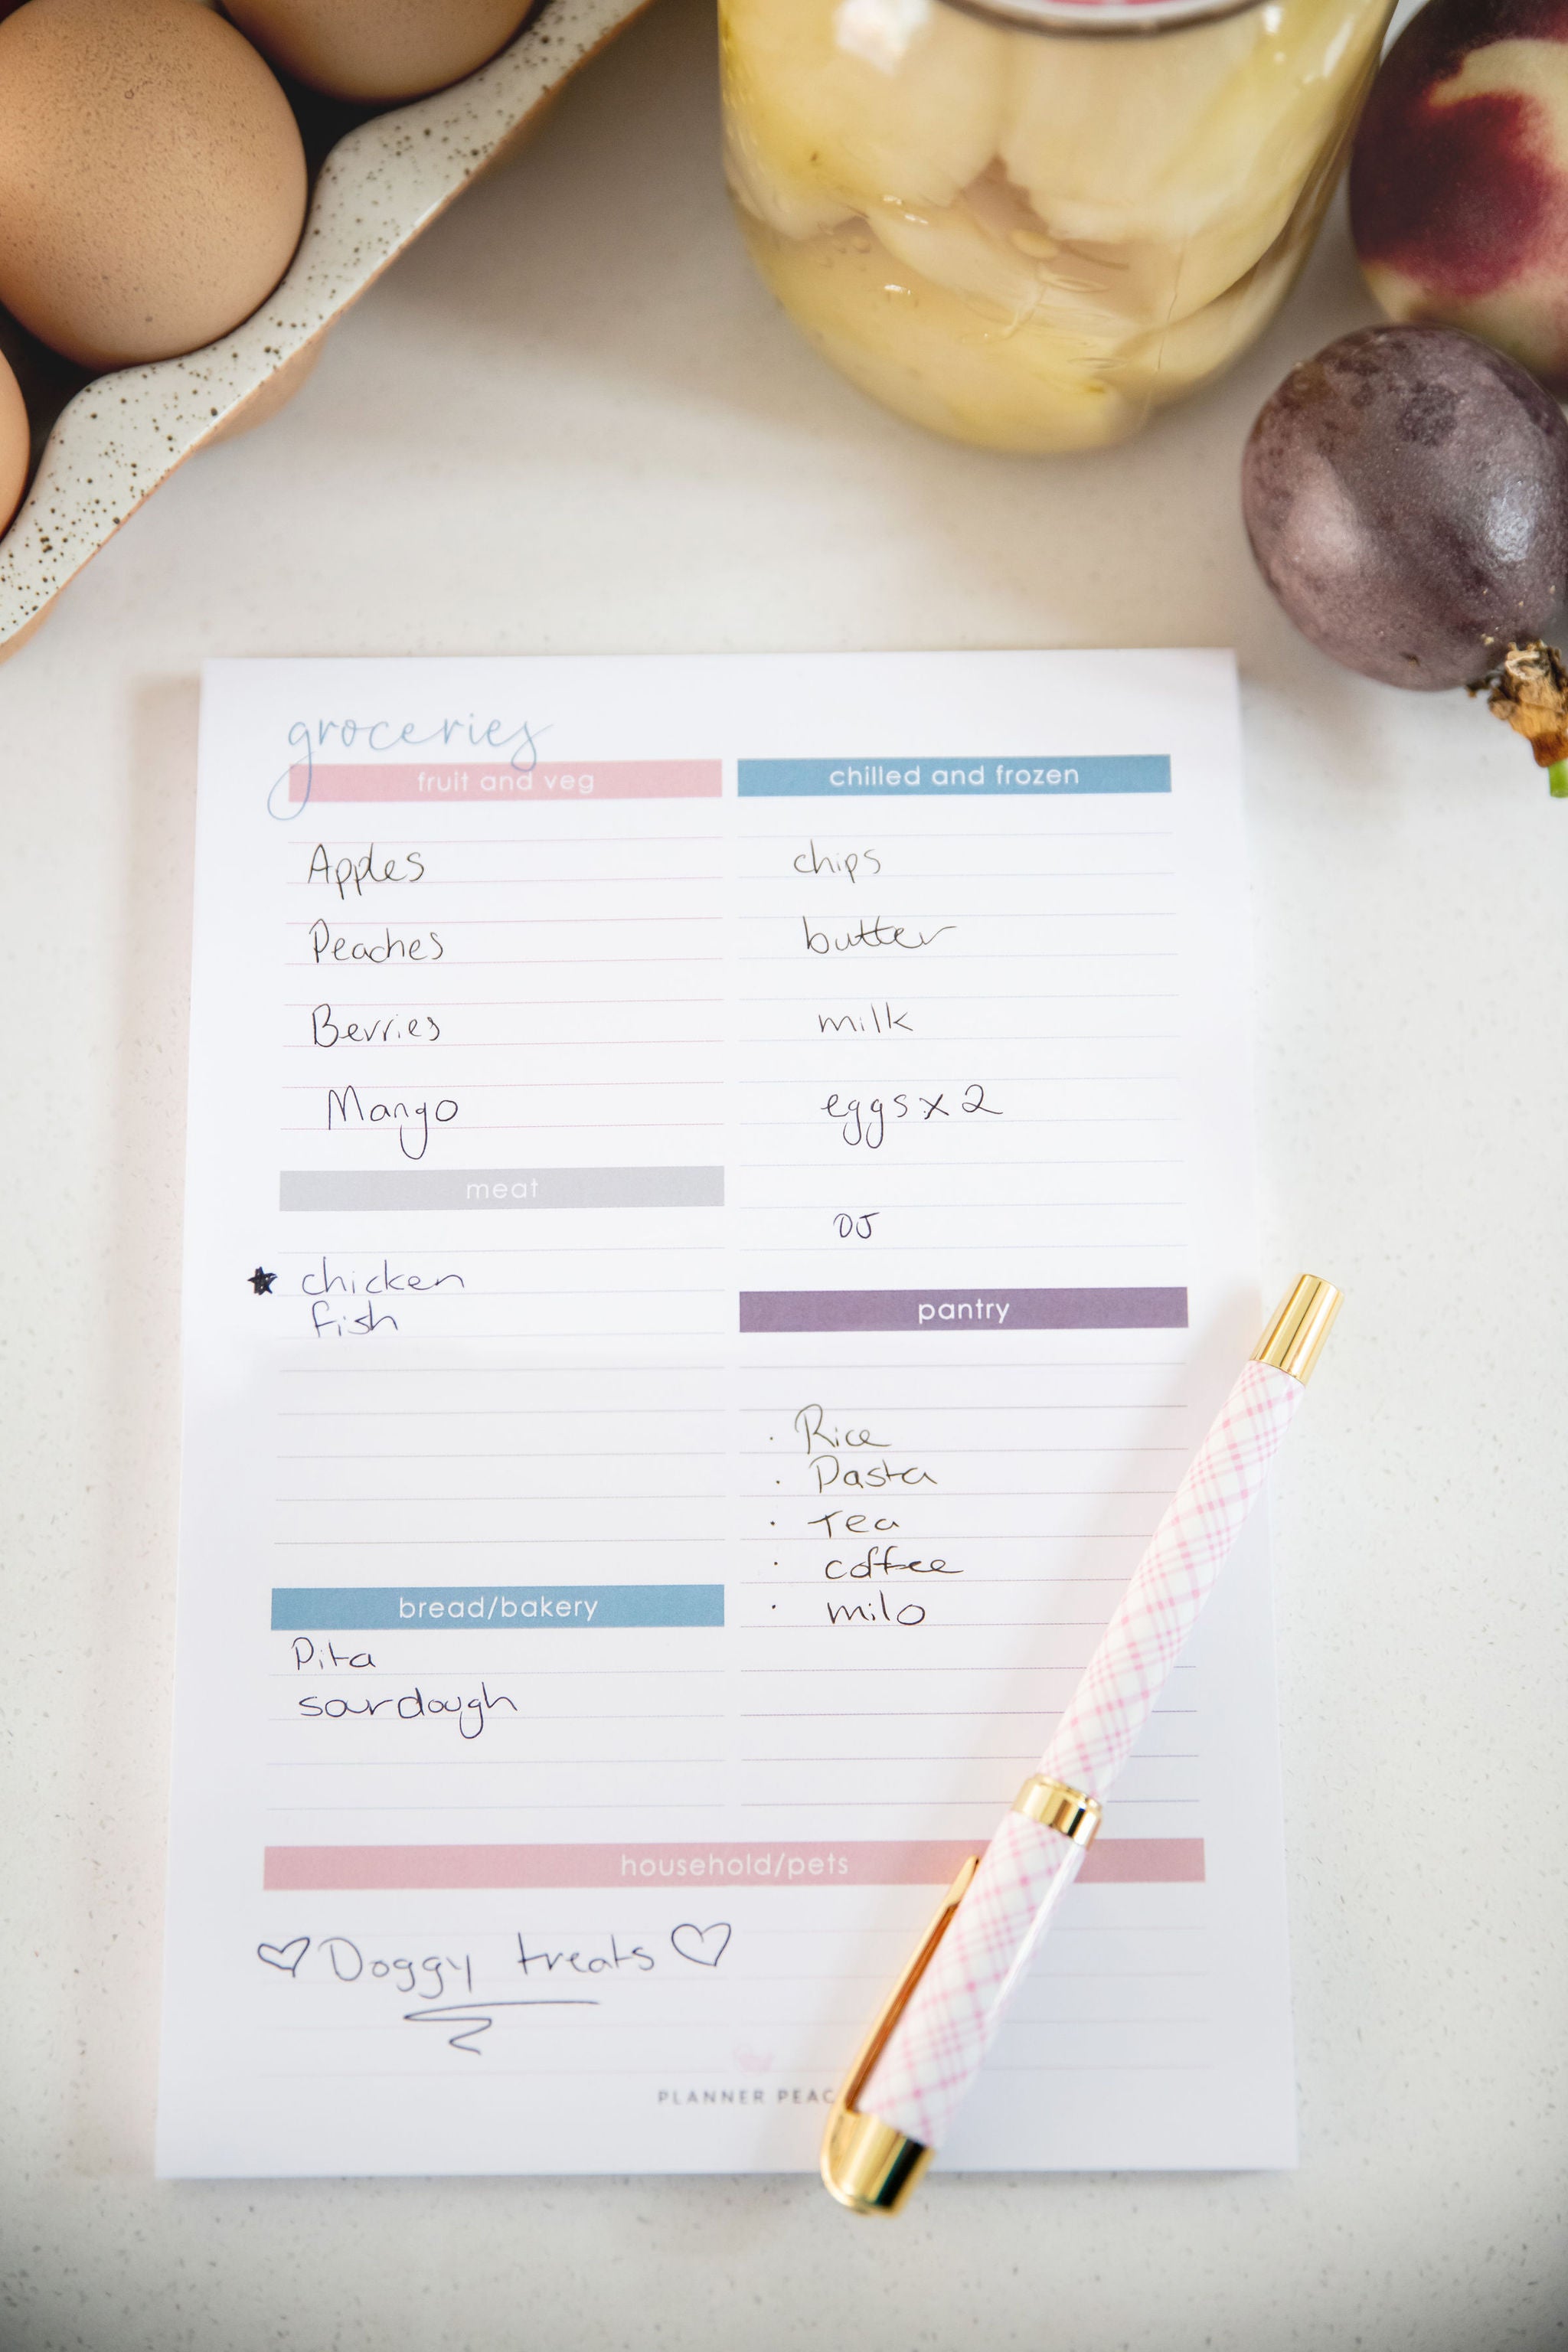 groceries
fruit and veg
Apples
Peaches
Berries
Mango
meat
chicken
fish
bread/bakery
Pita
sourdough
chilled and frozen
chips
butter
milk
eggs x 2
OJ
pantry
· Rice
· Pasta
· Tea
· coffee
· milo
household/pets
Doggy treats
PLANNER PEAC